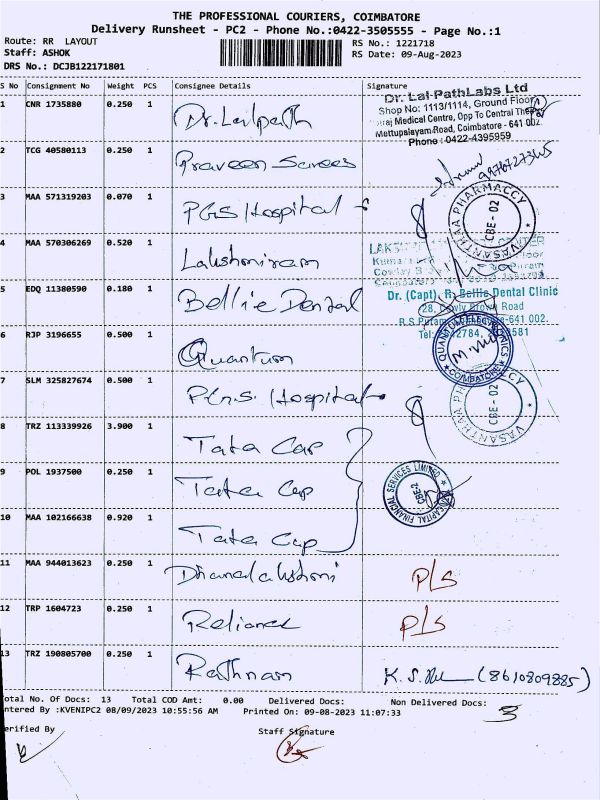 THE PROFESSIONAL COURIERS, COIMBATORE
Delivery Runsheet - PC2 - Phone No.:0422-3505555 - Page No.:1
Route: RR LAYOUT
RS No.: 1221718
Staff: ASHOK
RS Date: 09-Aug-2023
DRS No.: DCJB122171801
S No Consignment No Weight PCS Consignee Details Signature
1 CNR 1735880 0.250 1 Dr. Lalpath
Dr. Lal PathLabs Ltd
Shop No: 1113/1114, Ground Floor
Medical Centre, Opp To Central
Mettupalayam Road, Coimbatore - 641
Phone : 0422-4395959
2 TCG 40580113 0.250 1 Praveen Sarees
3 MAA 571319203 0.070 1 PGS Hospital
VASANTHAA PHARMACCY
CBE - 02
4 MAA 570306269 0.520 1 Lakshmiram
5 EDQ 11380590 0.180 1 Bellie Dental
Dr. (Capt). R. Bellie Dental Clinic
28, Cowly Brown Road
641 002.
6 RJP 3196655 0.500 1 Quantum
COIMBATORE
7 SLM 325827674 0.500 1 Hospital
CBE - 02
8 TRZ 113339926 3.900 1 Tata Cap
9 POL 1937500 0.250 1 Tata Cap
CAPITAL FINANCIAL SERVICES LIMITED
CBE-2
10 MAA 102166638 0.920 1 Tata Cap
11 MAA 944013623 0.250 1 Dhanalakshmi P/S
12 TRP 1604723 0.250 1 Reliance P/S
13 TRZ 190805700 0.250 1 Rathnam K. S. (8610809885)
otal No. Of Docs: 13 Total COD Amt: 0.00 Delivered Docs: Non Delivered Docs: 3
ntered By :KVENIPC2 08/09/2023 10:55:56 AM Printed On: 09-08-2023 11:07:33
erified By Staff Signature